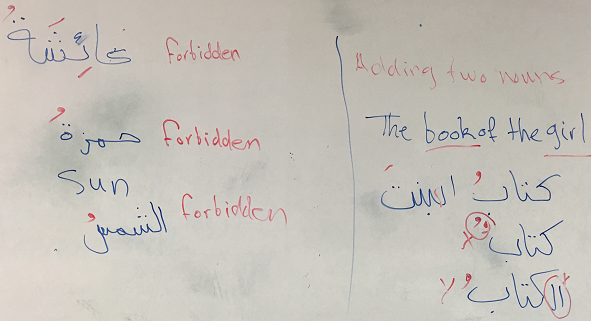 عَائِشَةُ forbidden
حمزةُ forbidden
Sun
الشمسُ forbidden
Adding two nouns
The book of the girl
كتابُ البنت
كتابٌ x
الكتابُ x